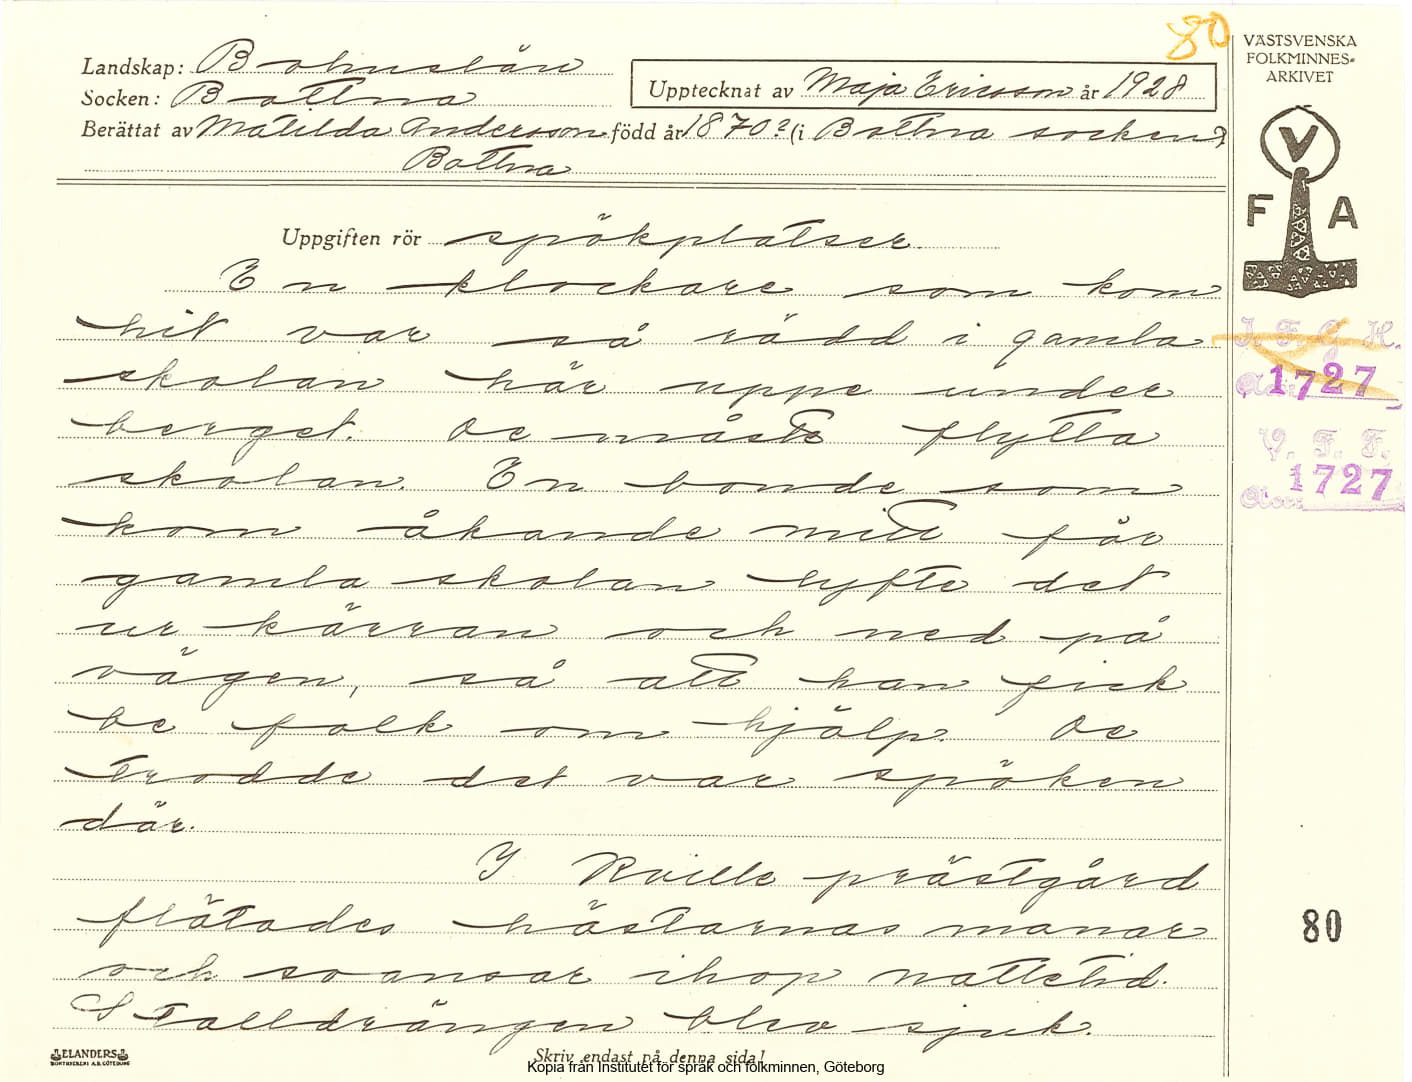 80
VÄSTSVENSKA
FOLKMINNES-
ARKIVET
Landskap: Bohuslän
Socken: Bottna
Upptecknat av Maja Ericsson år 1928
Berättat av Matilda Andersson född år 1870? (i Bottna socken?)
Bottna
V
F A
Uppgiften rör spökplatser.
En klockare som kom
hit var så rädd i gamla
skolan här uppe under
berget. De måste flytta
skolan. En bonde som
kom åkande mitt för
gamla skolan lyfte det
ur kärran och ned på
vägen, så att han fick
be folk om hjälp. De
trodde det var spöken
där.
I Kville prästgård
flätades hästarnas manar
och svansar ihop nattetid.
Stalldrängen blev sjuk.
I. F. G. H.
Acc. 1727
V. F. F.
1727
Acc.:
80
ELANDERS
BOKTRYCKERI A.B. GÖTEBORG
Skriv endast på denna sida!
Kopia från Institutet för språk och folkminnen, Göteborg